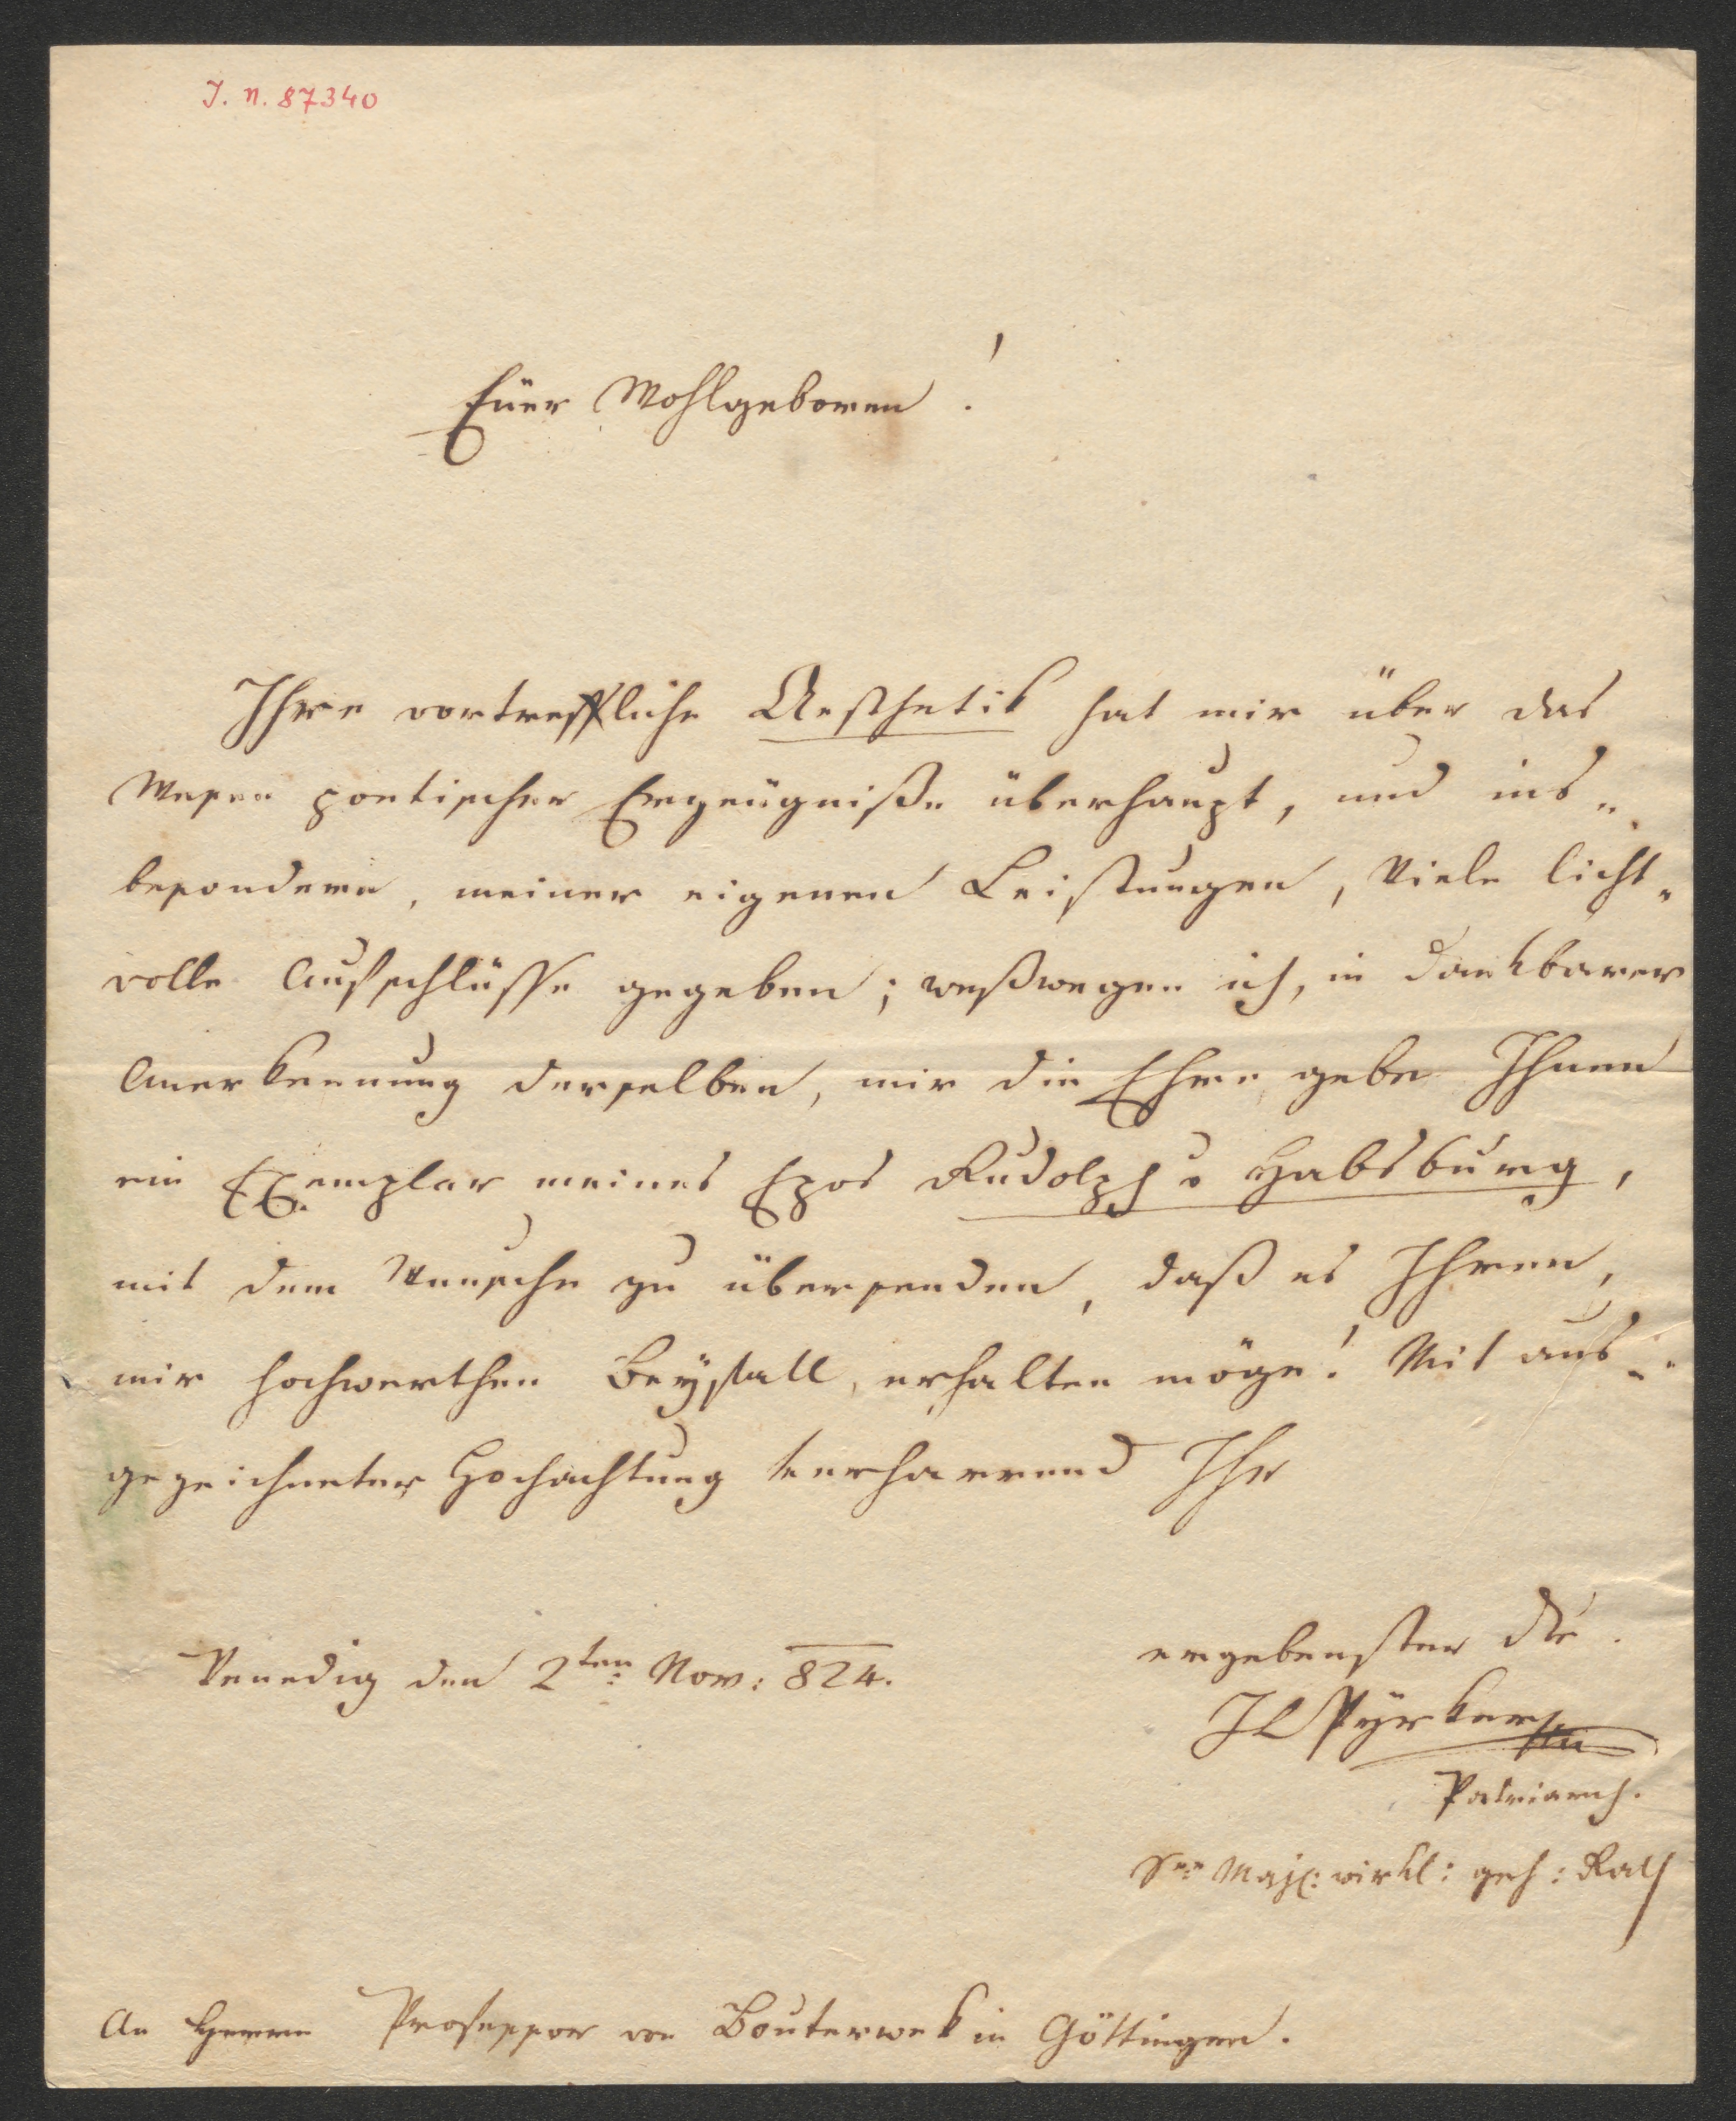 J. N. 87340
Euer Wohlgeboren!
Ihre vortreffliche Aesthetik hat mir über das
Wesen poetischer Erzeugniße überhaupt, und ins„
besondere, meiner eigenen Leistungen, Viele licht„
volle Aufschlüsse gegeben; weßwegen ich, in dankbarer
Anerkennung derselben, mir die Ehre gebe Ihnen
ein Exemplar meines Epos Rudolph v Habsburg,
mit dem Wunsche zu übersenden, daß es Ihren,
mir hochwerthen Beyfall, erhalten möge! Mit aus„
gezeichneter Hochachtung verharrend Ihr
ergebenster Dr.
Venedig den 2ten Nov: 824.
JL Pyrker
Patriarch.
Sr: Maj: wirkl: geh: Rath
An Herrn Professor von Bouterwek in Göttingen.